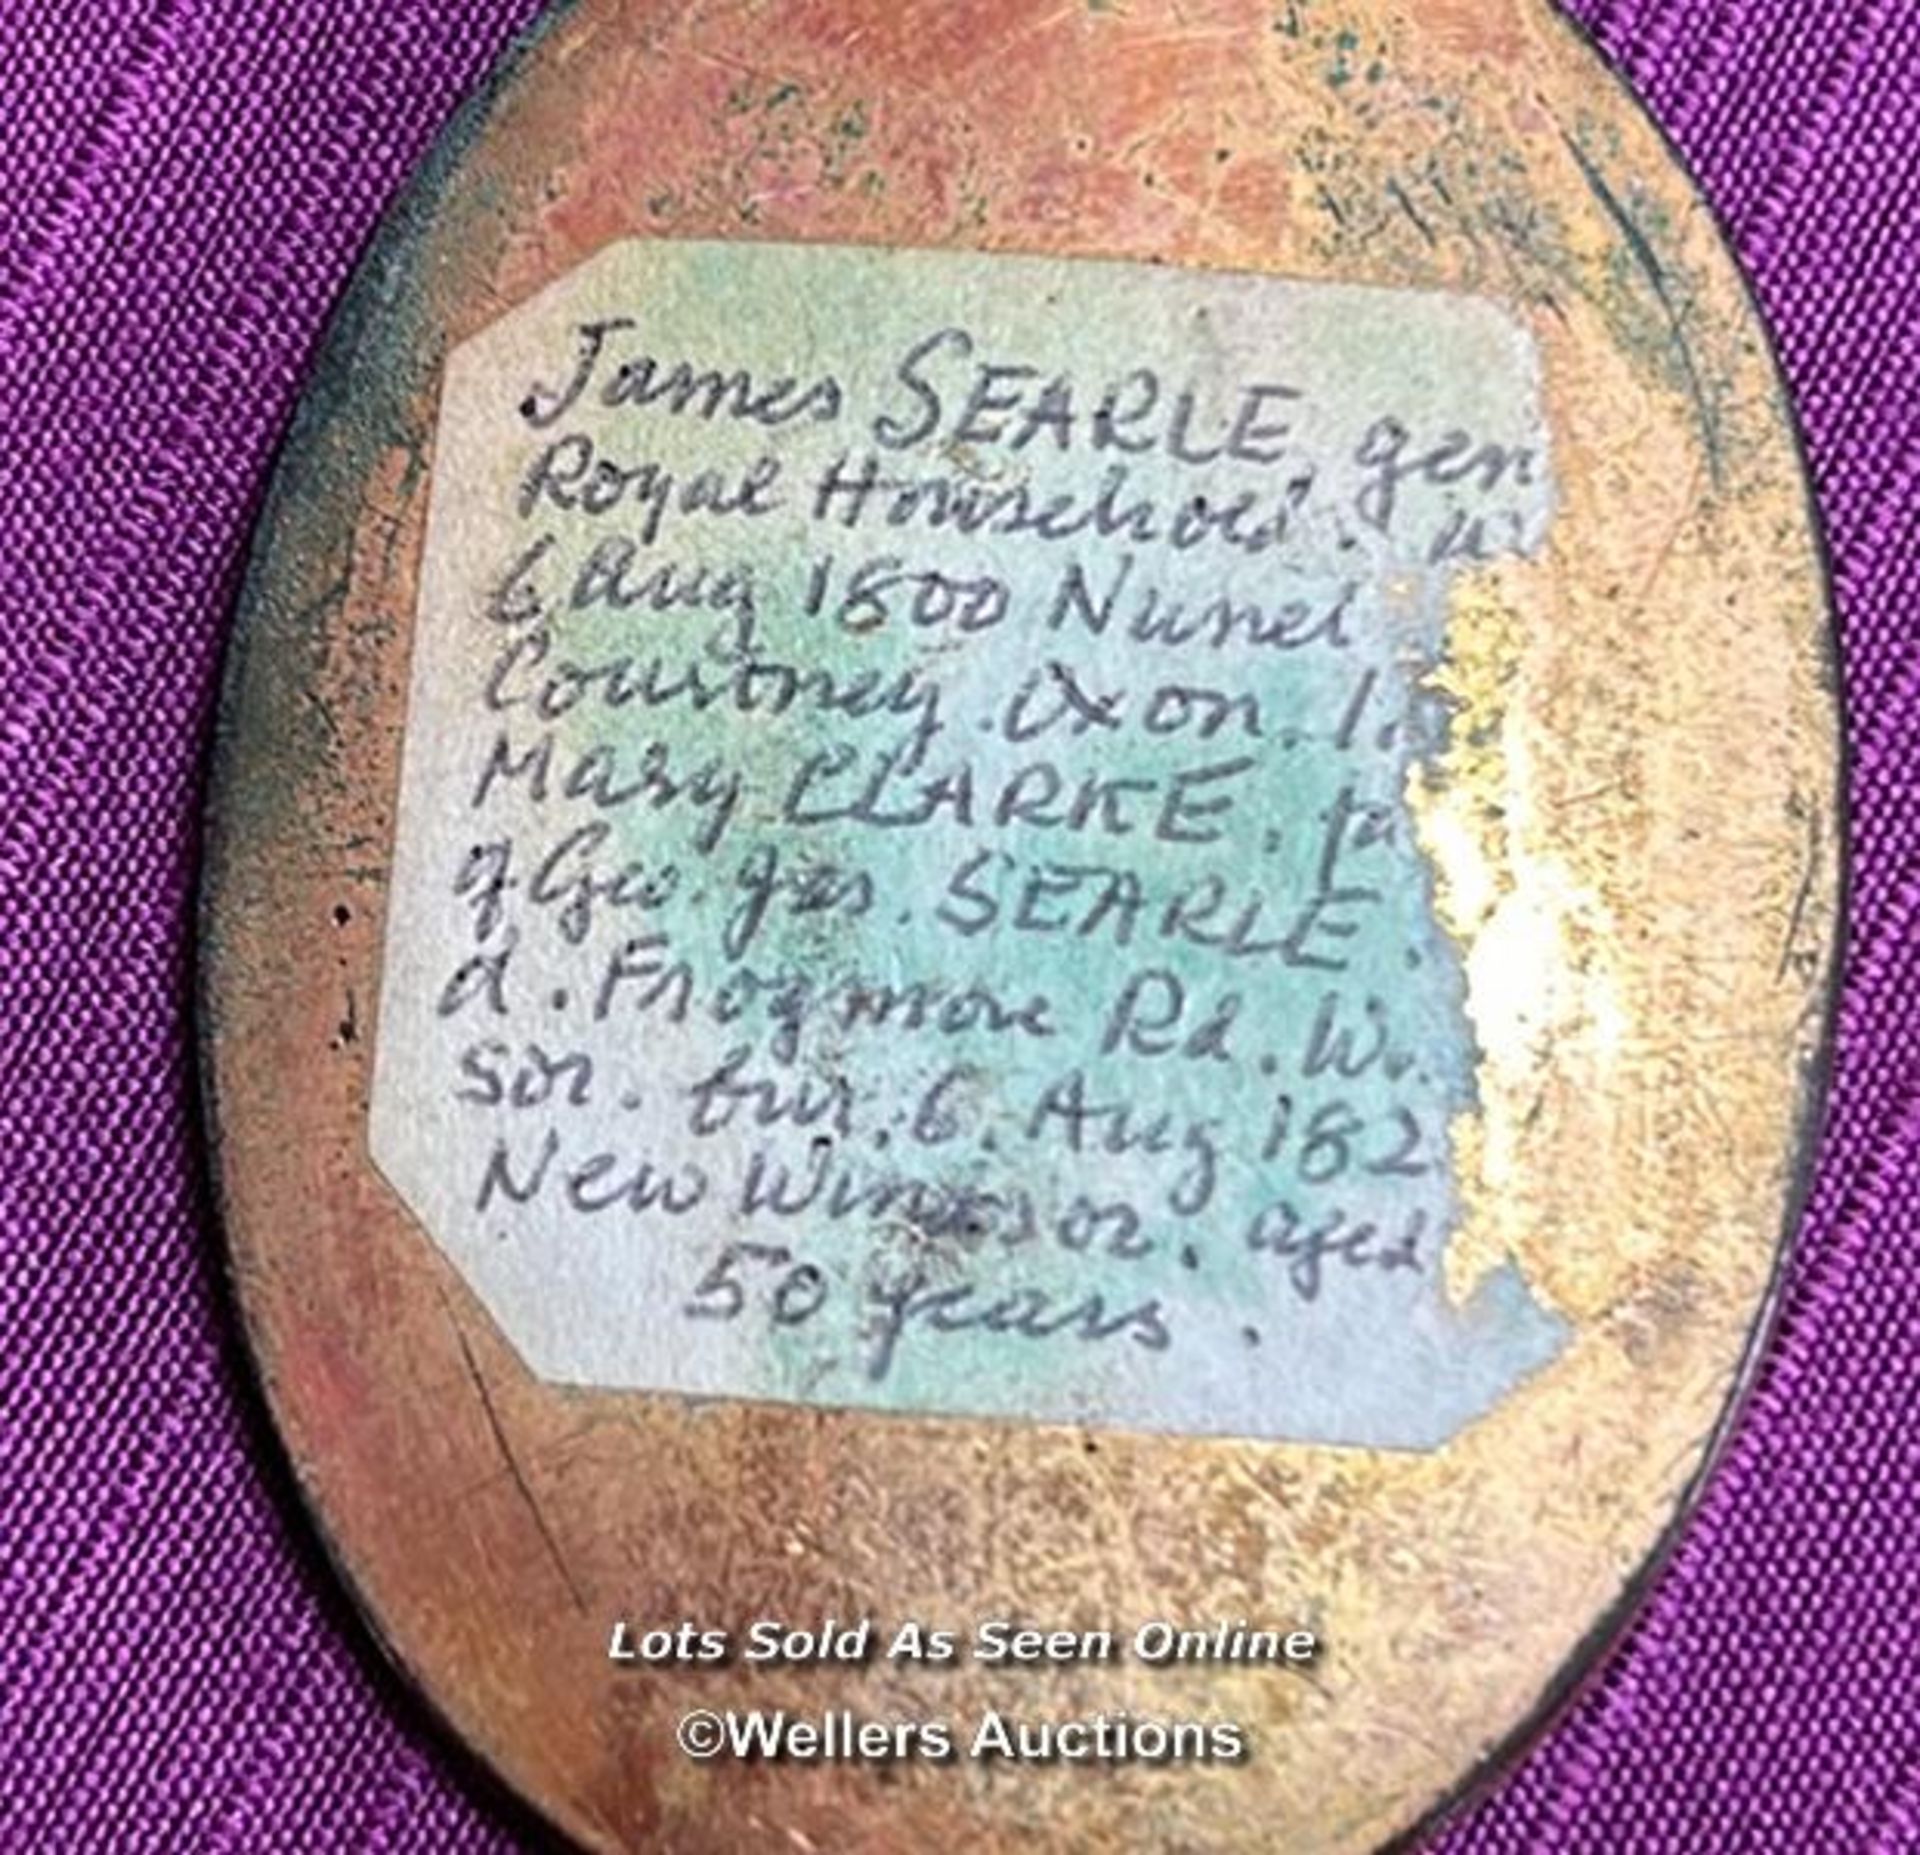 James SEARLE, gen
Royal Household.
6 Aug 1800 Nunel
Courtney. Oxon.
Mary CLARKE.
of Geo. Jas. SEARLE.
d. Frogmore Rd. W
sor. bur. 6. Aug 182
New Windsor. aged
50 years.
Lots Sold As Seen Online
©Wellers Auctions